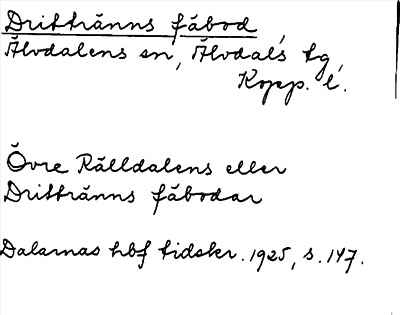 Drittränns fäbod,
Älvdalens sn, Älvdals tg,
Kopp. l.
Övre Rälldalens eller
Drittränns fäbodar
Dalarnas hbf tidskr. 1925, s. 147.